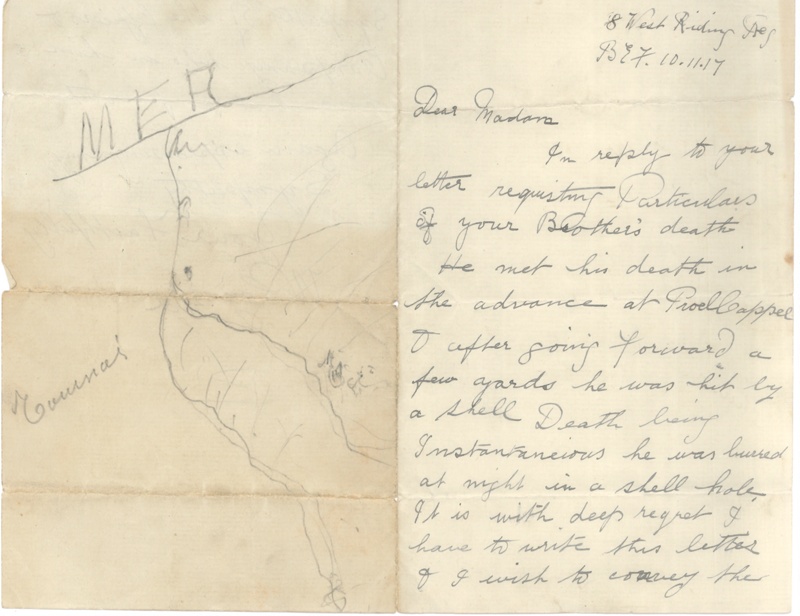 MER
Tournai
8 West Riding Reg
BEF. 10.11.17
Dear Madam
In reply to your
letter requisting Particulars
of your Brother's death
He met his death in
the advance at PoelCappel
& after going forward a
few yards he was hit by
a shell Death being
Instantancious he was burred
at night in a shell hole,
It is with deep regret I
have to write this letter
& I wish to convey the